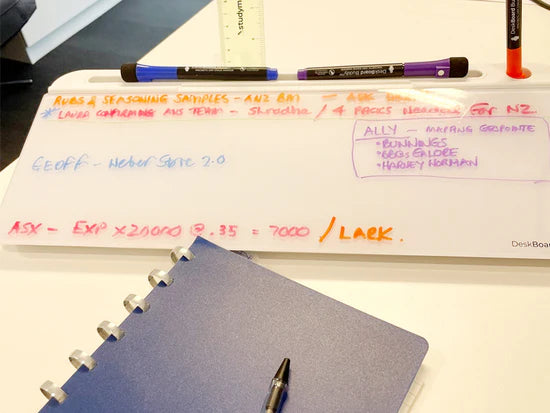 studym
DeskBoard Buddy
DeskBoard Buddy
RUBS & SEASONING SAMPLES - ANZ BM = ASK
* LAURA CONFIRMING AUS TEAM - Shradha / 4 PACKS NEEDED FOR NZ
ALLY - MAPPING CORPORATE
• BUNNINGS
• BBQS GALORE
• HARVEY NORMAN
GEOFF - Weber Store 2.0
ASX - EXP x 20000 @ .35 = 7000 / LARK.
DeskBoar